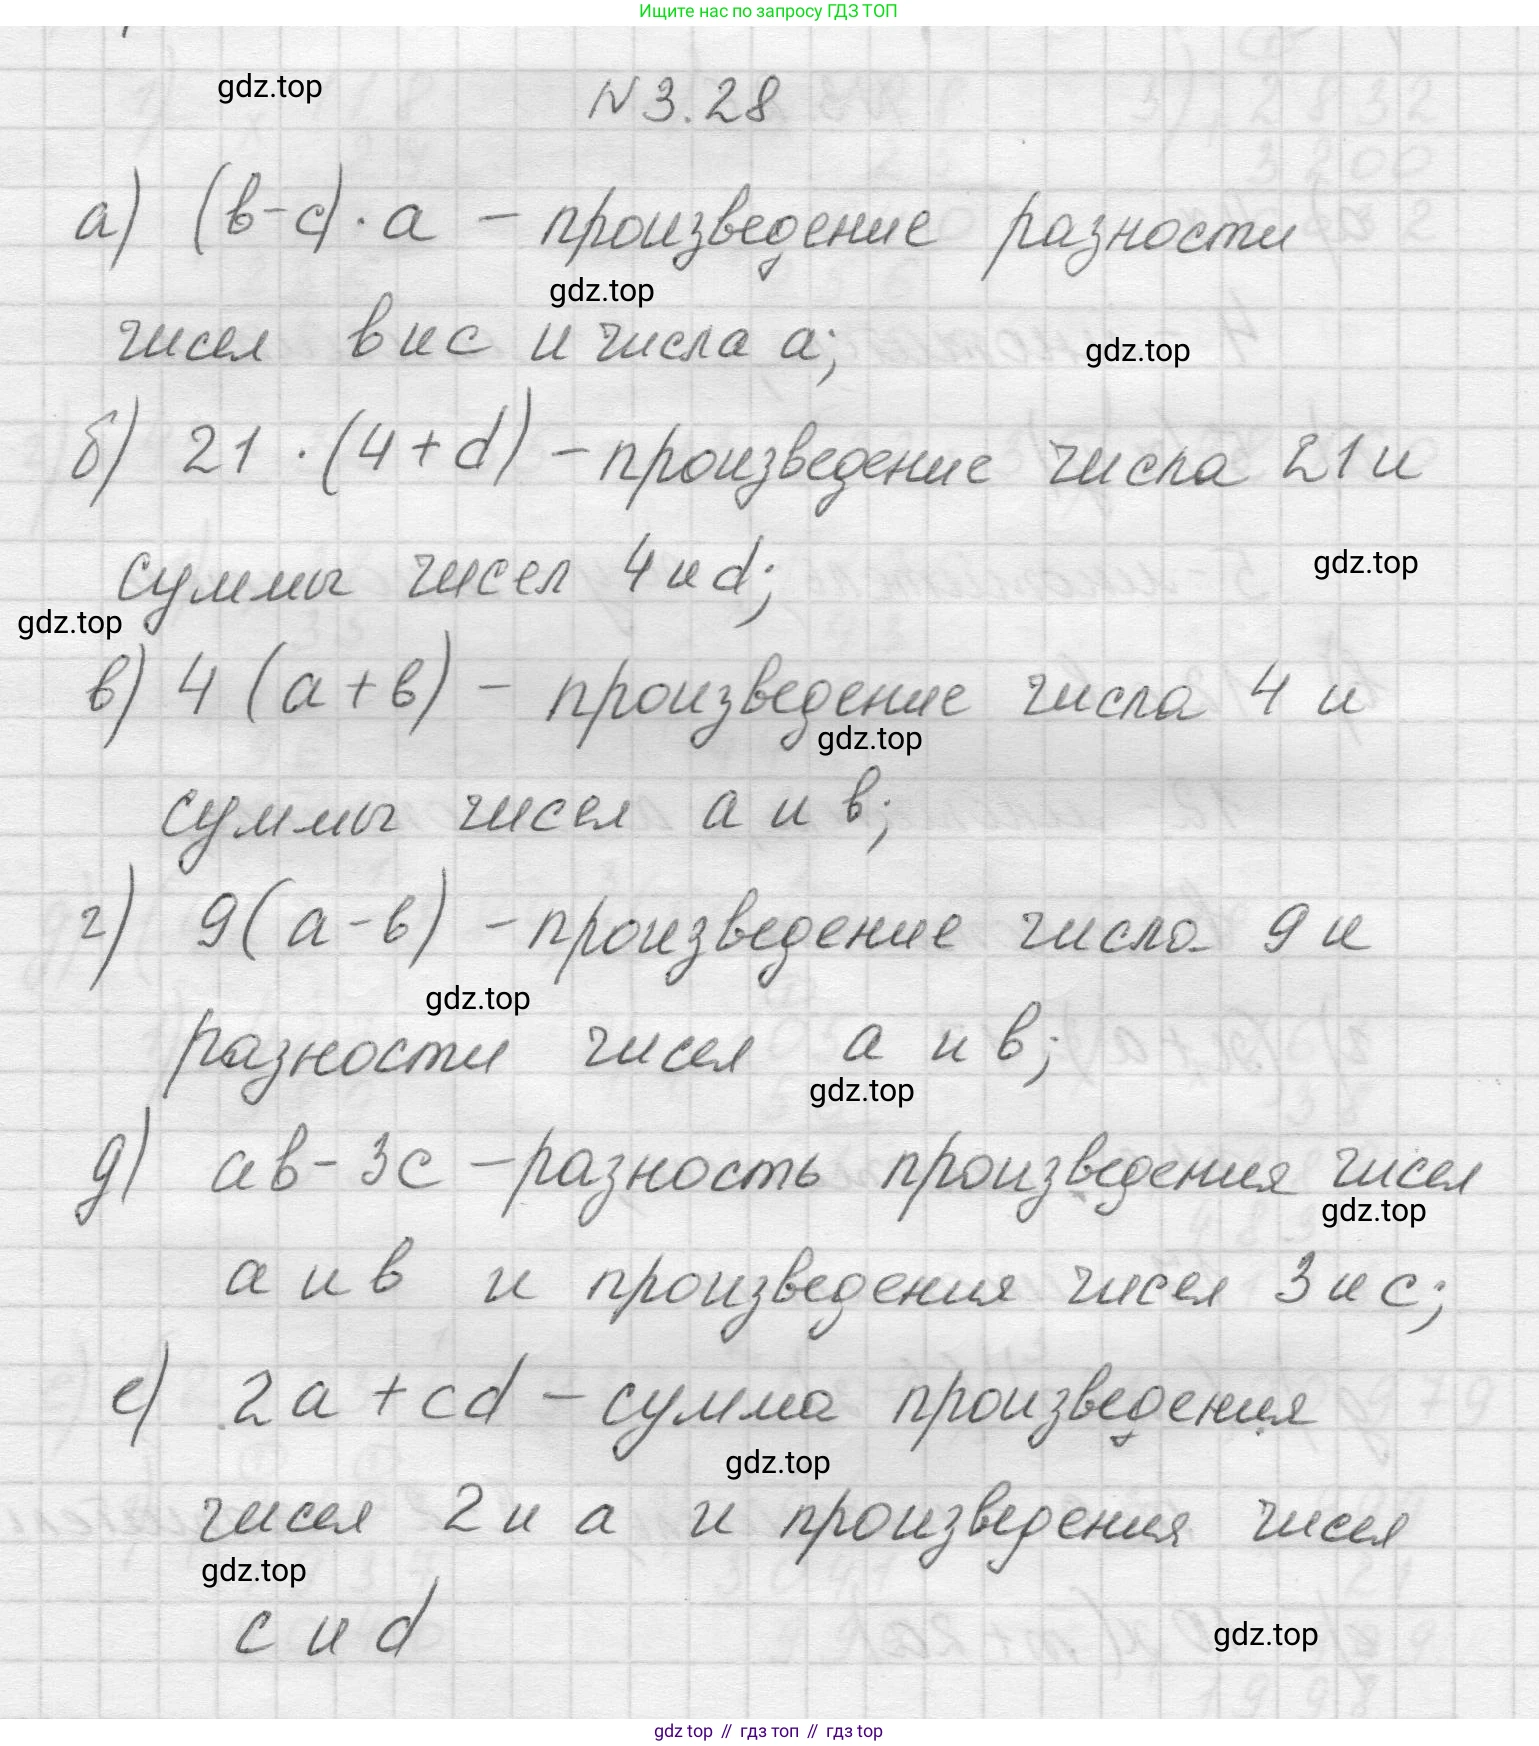 Ищите нас по запросу ГДЗ ТОП
gdz.top
N 3.28
а) (в-с)·а – произведение разности
gdz.top
чисел в и с и числа а;
gdz.top
б) 21·(4+d) – произведение числа 21 и
gdz.top
суммы чисел 4 и d;
gdz.top
в) 4(а+в) – произведение числа 4 и
gdz.top
суммы чисел а и в;
г) 9(а-в) – произведение числа 9 и
gdz.top
разности чисел а и в;
gdz.top
д) ав-3с – разность произведения чисел
gdz.top
а и в и произведения чисел 3 и с;
е) 2а+сd – сумма произведения
gdz.top
чисел 2 и а и произведения чисел
gdz.top
с и d
gdz.top
gdz top // гдз топ // гдз top